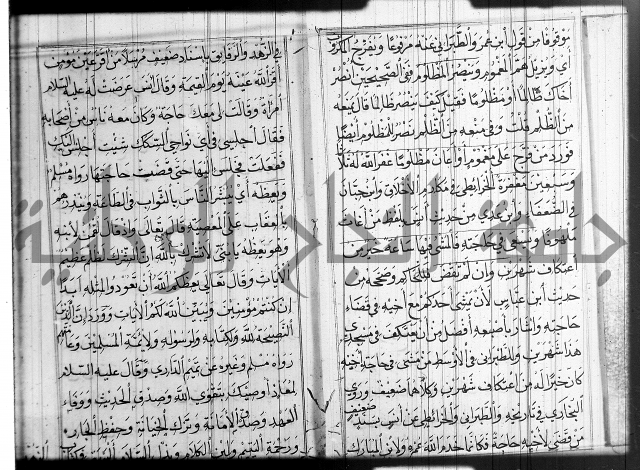 موقوفا من قول ابن عمر والطبراني عنه مرفوعا ويفرج المكروب
اي ويزيل هم المغموم وينصر المظلوم ففي الصحيحين انصر
اخاك ظالما او مظلوما فقيل كيف ينصر ظالما قال يمنعه
من الظلم قلت وفي منعه من الظلم نصر للمظلوم ايضا
فورد من فرج على مغموم او اعان مظلوما غفر الله له ثلاثا
وسبعين مغفرة الخرايطي في مكارم الاخلاق وابن حبان
في الضعفا وابن عدي من حديث انس بلفظ من اغاث
ملهوفا ويسعى في حاجته فالمشي فيها ساعة خير من
اعتكاف شهرين وان لم تقض فللحاكم وصححه من
حديث ابن عباس لان يمشي احدكم مع اخيه في قضاء
حاجته واشار باصبعه افضل من ان يعتكف في مسجدي
هذا شهرين وللطبراني في الاوسط من مشى في حاجة اخيه
كان خيرا له من اعتكاف شهرين وكلاهما ضعيف وروي
البخاري في تاريخه والطبراني والخرائطي عن انس بسند ضعيف
من قضى لاخيه حاجة فكانما خدم الله عمره ولابن المبارك
في الزهد والرقايق باسناد ضعيف مرسلا من اقر عين مؤمن
اقر الله عينه يوم القيمة وقال انس عرضت له عليه السلام
امراة وقالت لي معك حاجة وكان معه ناس من اصحابه
فقال اجلسي في اي نواحي السكك شئت اجلس اليك
ففعلت فجلس اليها حتى قضت حاجتها رواه مسلم
ويعظه اي يبشر الناس بالثواب في الطاعة وينذرهم
بالعقاب على المعصية قال تعالى واذ قال لقمن لابنه
وهو يعظه يا بني لا تشرك بالله ان الشرك لظلم عظيم
الايات وقال تعالى يعظكم الله ان تعودوا لمثله ابدا
ان كنتم مؤمنين ويبين الله لكم الايات وورد ان الدين
النصيحة لله ولكتابه ولرسوله ولائمة المسلمين وعامتهم
رواه مسلم وغيره عن تميم الداري وقال عليه السلام
لمعاذ اوصيك بتقوى الله وصدق الحديث ووفاء
العهد واداء الامانة وترك الخيانة وحفظ الجار
ورحمة اليتيم ولين الكلام وبذل السلام
جامعة النجاح الوطنية